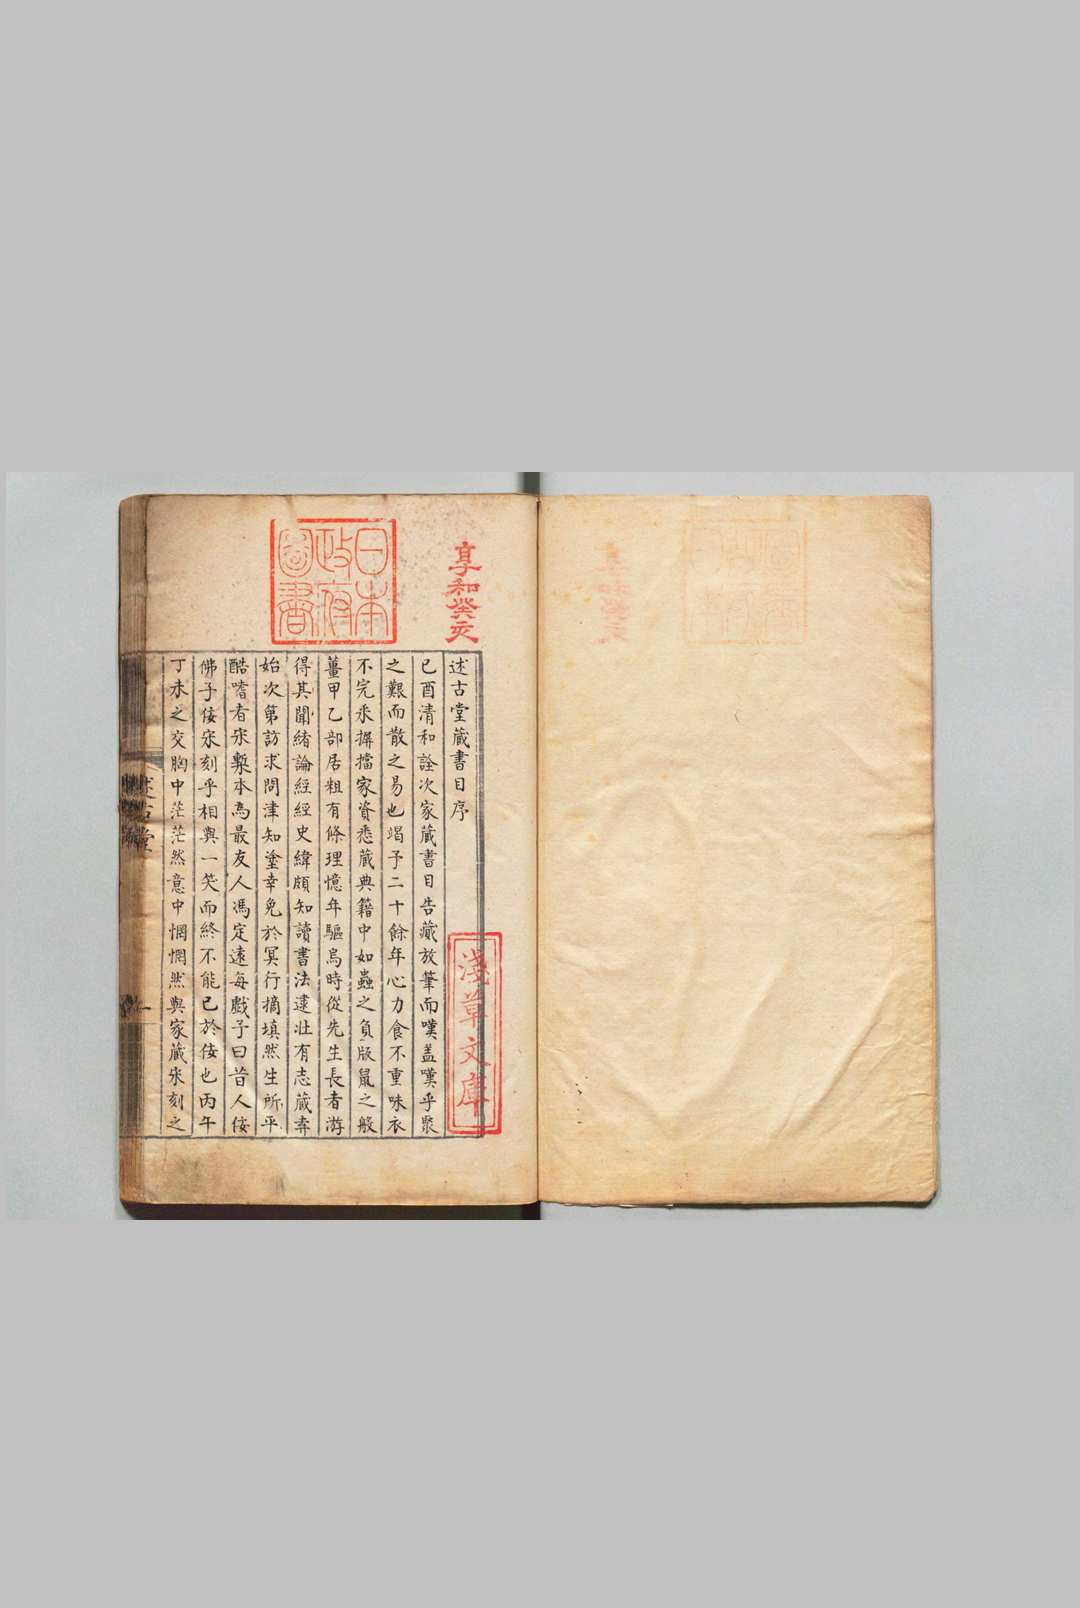 享和癸亥
日本
政府
圖書
述古堂藏書目序
己酉清和詮次家藏書目告藏放筆而嘆盖嘆乎聚
之艱而散之易也竭予二十餘年心力食不重味衣
不完采摒擋家資悉藏典籍中如蟲之負版鼠之般
薑甲乙部居粗有條理憶年驅烏時從先生長者游
得其聞緒論經經史緯頗知讀書法逮壮有志藏弆
始次第訪求問津知塗幸免於冥行摘填然生所平
酷嗜者宋槧本為最友人馮定遠每戲予曰昔人佞
佛子佞宋刻乎相與一笑而終不能已於佞也丙午
丁未之交胸中茫茫然意中惘惘然與家藏宋刻之
淺草文庫
述古堂